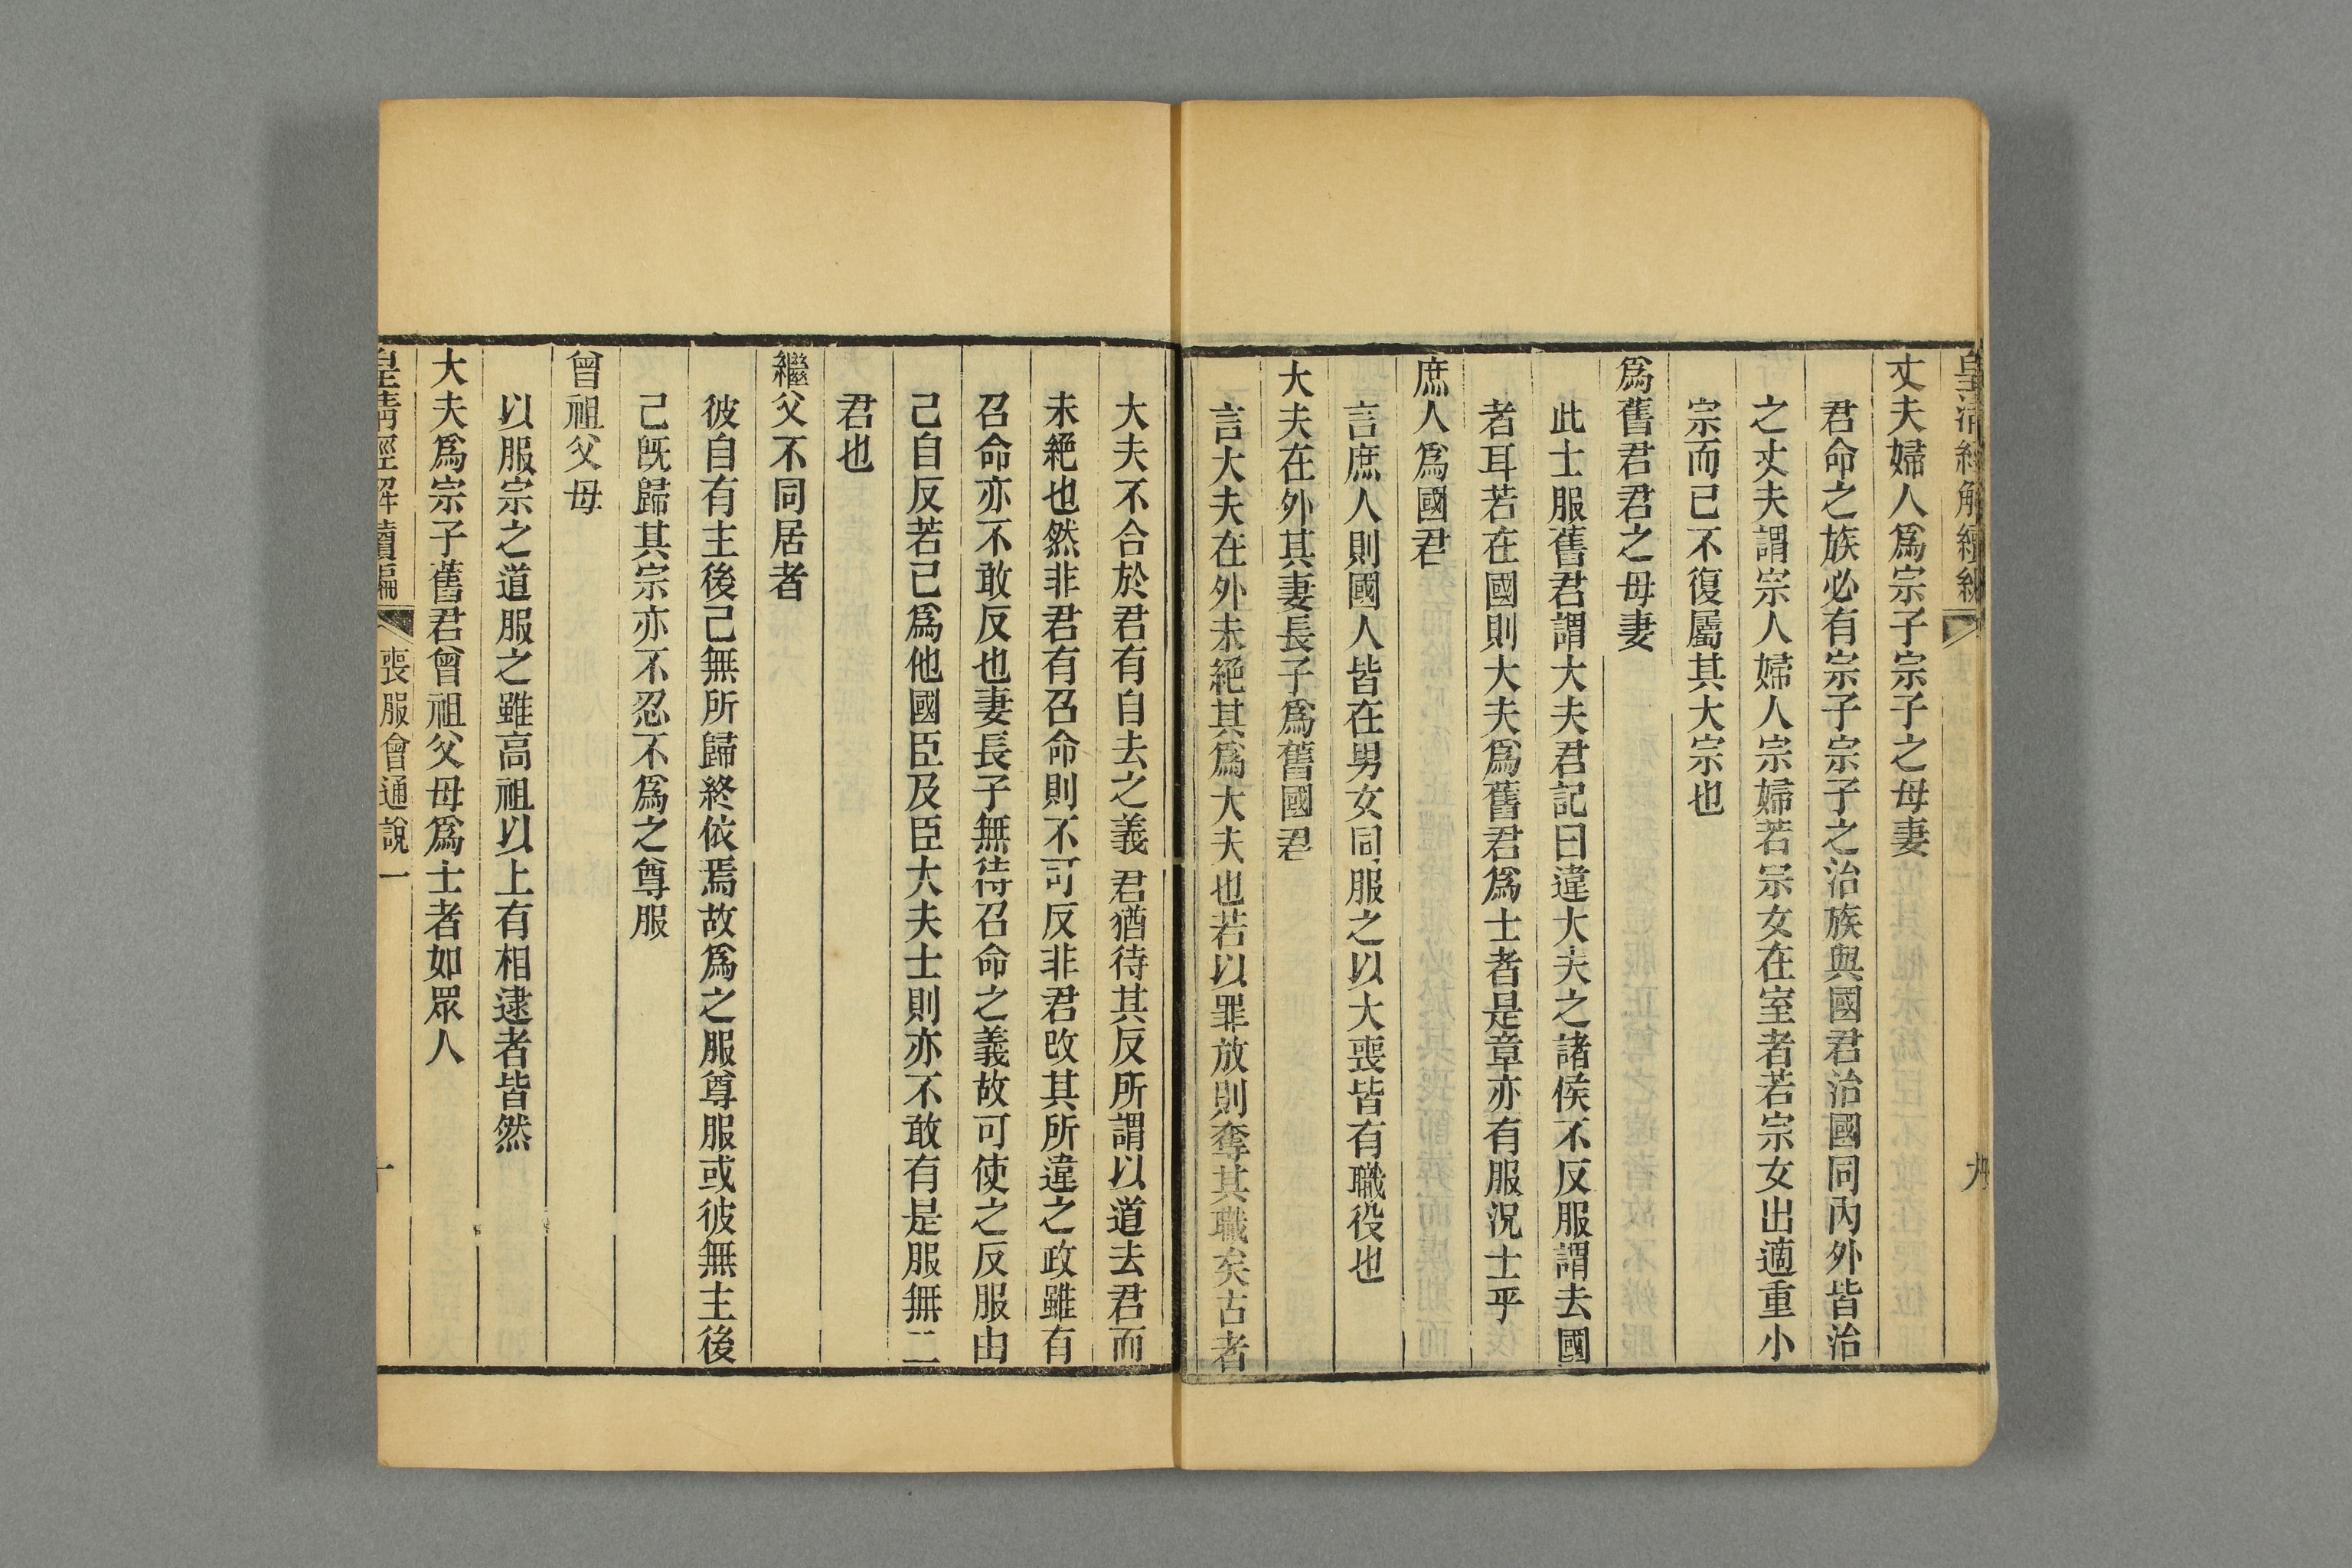 皇清經解續編
九
丈夫婦人爲宗子宗子之母妻
君命之族必有宗子宗子之治族與國君治國同內外皆治
之丈夫謂宗人婦人宗婦若宗女在室者若宗女出適重小
宗而已不復屬其大宗也
爲舊君君之母妻
此士服舊君謂大夫君記曰違大夫之諸侯不反服謂去國
者耳若在國則大夫爲舊君爲士者是章亦有服況士乎
庶人爲國君
言庶人則國人皆在男女同服之以大喪皆有職役也
大夫在外其妻長子爲舊國君
言大夫在外未絕其爲大夫也若以罪放則奪其職矣古者
大夫不合於君有自去之義君猶待其反所謂以道去君而
未絕也然非君有召命則不可反非君改其所違之政雖有
召命亦不敢反也妻長子無待召命之義故可使之反服由
己自反若已爲他國臣及臣大夫士則亦不敢有是服無二
君也
繼父不同居者
彼自有主後己無所歸終依焉故爲之服尊服或彼無主後
己旣歸其宗亦不忍不爲之尊服
曾祖父母
以服宗之道服之雖高祖以上有相逮者皆然
大夫爲宗子舊君曾祖父母爲士者如眾人
皇清經解續編
喪服會通說一
十